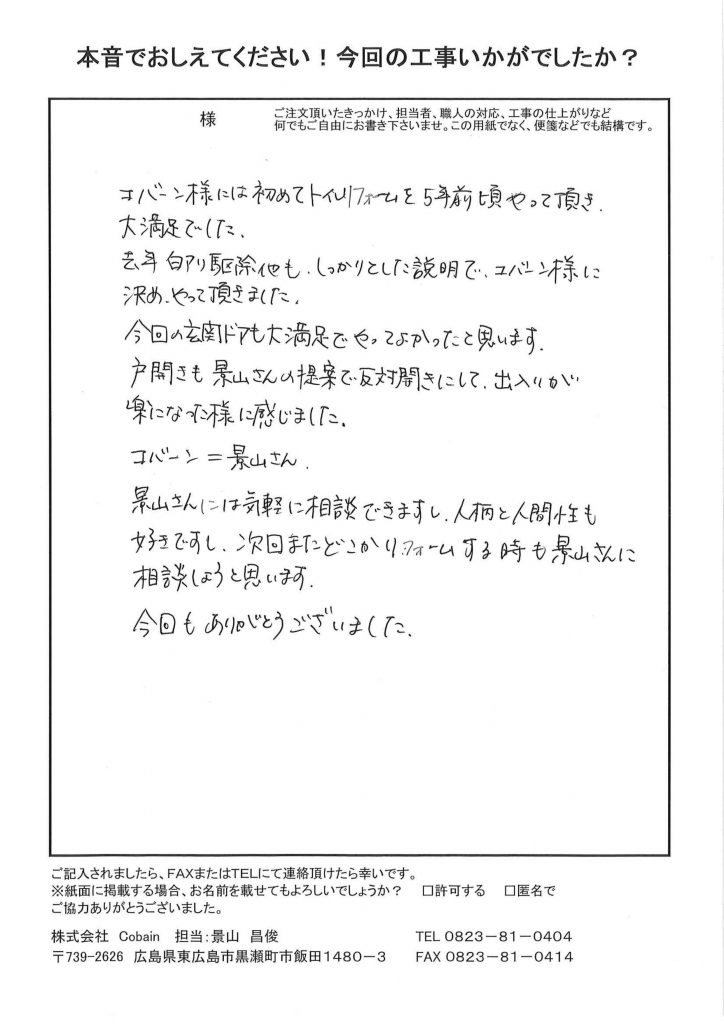 本音でおしえてください！今回の工事いかがでしたか？
様
ご注文頂いたきっかけ、担当者、職人の対応、工事の仕上がりなど
何でもご自由にお書き下さいませ。この用紙でなく、便箋などでも結構です。
コバーン様には初めてトイレリフォームを5年前頃やって頂き、
大満足でした。
去年白アリ駆除他も、しっかりとした説明で、コバーン様に
決め、やって頂きました。
今回の玄関ドアも大満足でやってよかったと思います。
戸開きも景山さんの提案で反対開きにして、出入りが
楽になった様に感じました。
コバーン＝景山さん、
景山さんには気軽に相談できますし、人柄と人間性も
好きですし、次回またどこかリフォームする時も景山さんに
相談しようと思います。
今回もありがとうございました。
ご記入されましたら、FAXまたはTELにて連絡頂けたら幸いです。
※紙面に掲載する場合、お名前を載せてもよろしいでしょうか？　□許可する　□匿名で
ご協力ありがとうございました。
株式会社 Cobain 担当：景山 昌俊　TEL 0823－81－0404
〒739-2626 広島県東広島市黒瀬町市飯田1480－3　FAX 0823－81－0414